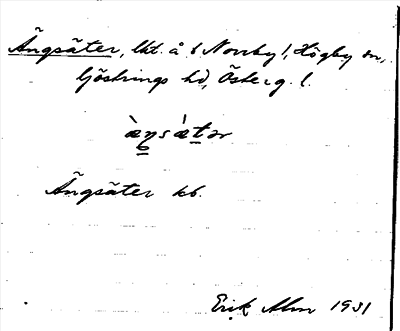 Ängsäter, lht. å 1 Norrby 1, Högby sn,
Göstrings hd, Österg. l.
Ängsäter kb.
Erik Alm 1931